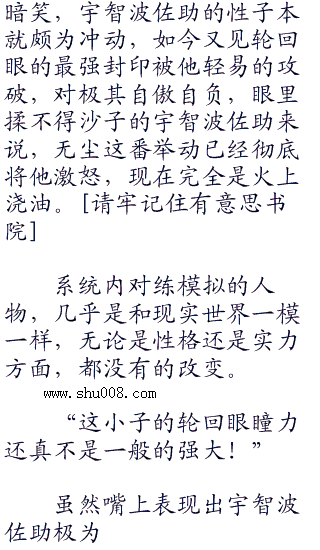 暗笑，宇智波佐助的性子本
就颇为冲动，如今又见轮回
眼的最强封印被他轻易的攻
破，对极其自傲自负，眼里
揉不得沙子的宇智波佐助来
说，无尘这番举动已经彻底
将他激怒，现在完全是火上
浇油。[请牢记住有意思书
院]
系统内对练模拟的人
物，几乎是和现实世界一模
一样，无论是性格还是实力
方面，都没有的改变。
www.shu008.com
“这小子的轮回眼瞳力
还真不是一般的强大！”
虽然嘴上表现出宇智波
佐助极为